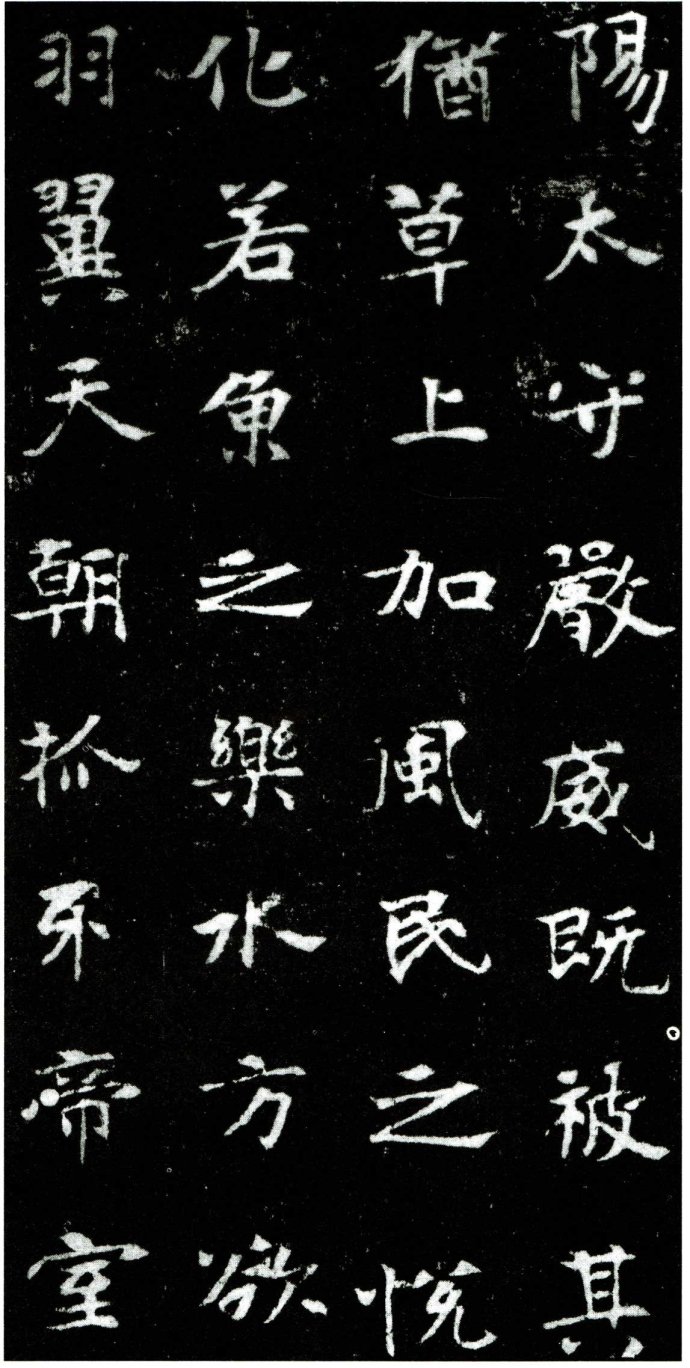 陽太守嚴威既被其
猶草上加風民之悦
化若魚之樂水方欲
羽翼天朝抓牙帝室